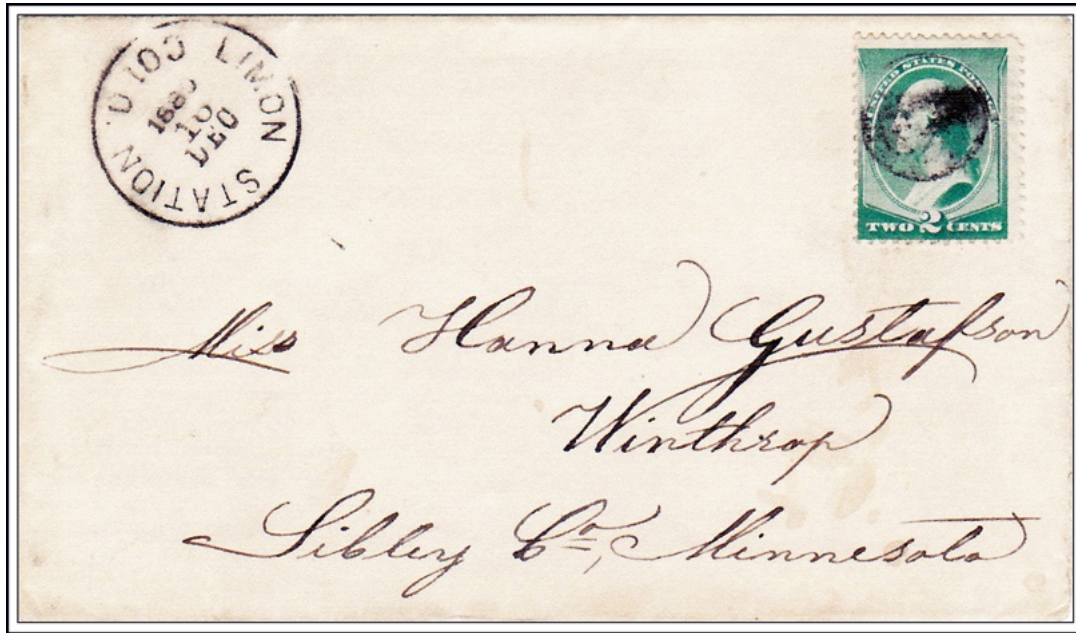 LIMON STATION COLO.
18
DEC
UNITED STATES POSTAGE
TWO 2 CENTS
Miss Hanna Gustafson
Winthrop
Sibley Co, Minnesota